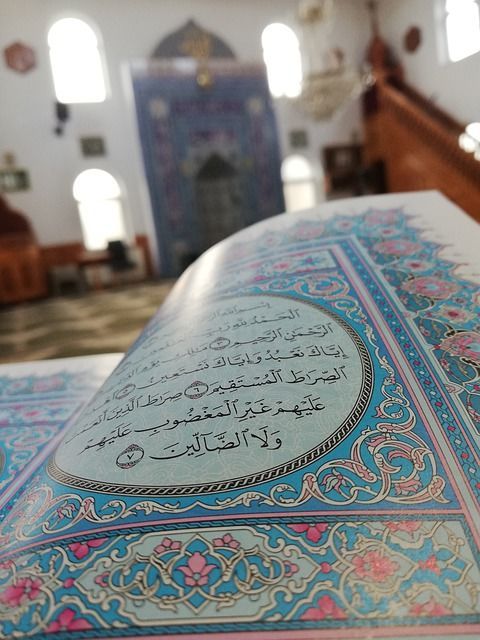 بِسْمِ اللَّهِ
الْحَمْدُ لِلَّهِ
الرَّحْمَنِ الرَّحِيمِ ۝٣ مَالِكِ
إِيَّاكَ نَعْبُدُ وَإِيَّاكَ نَسْتَعِينُ ۝٥
الصِّرَاطَ الْمُسْتَقِيمَ ۝٦ صِرَاطَ الَّذِينَ أَنْعَمْتَ
عَلَيْهِمْ غَيْرِ الْمَغْضُوبِ عَلَيْهِمْ
وَلَا الضَّالِّينَ ۝٧